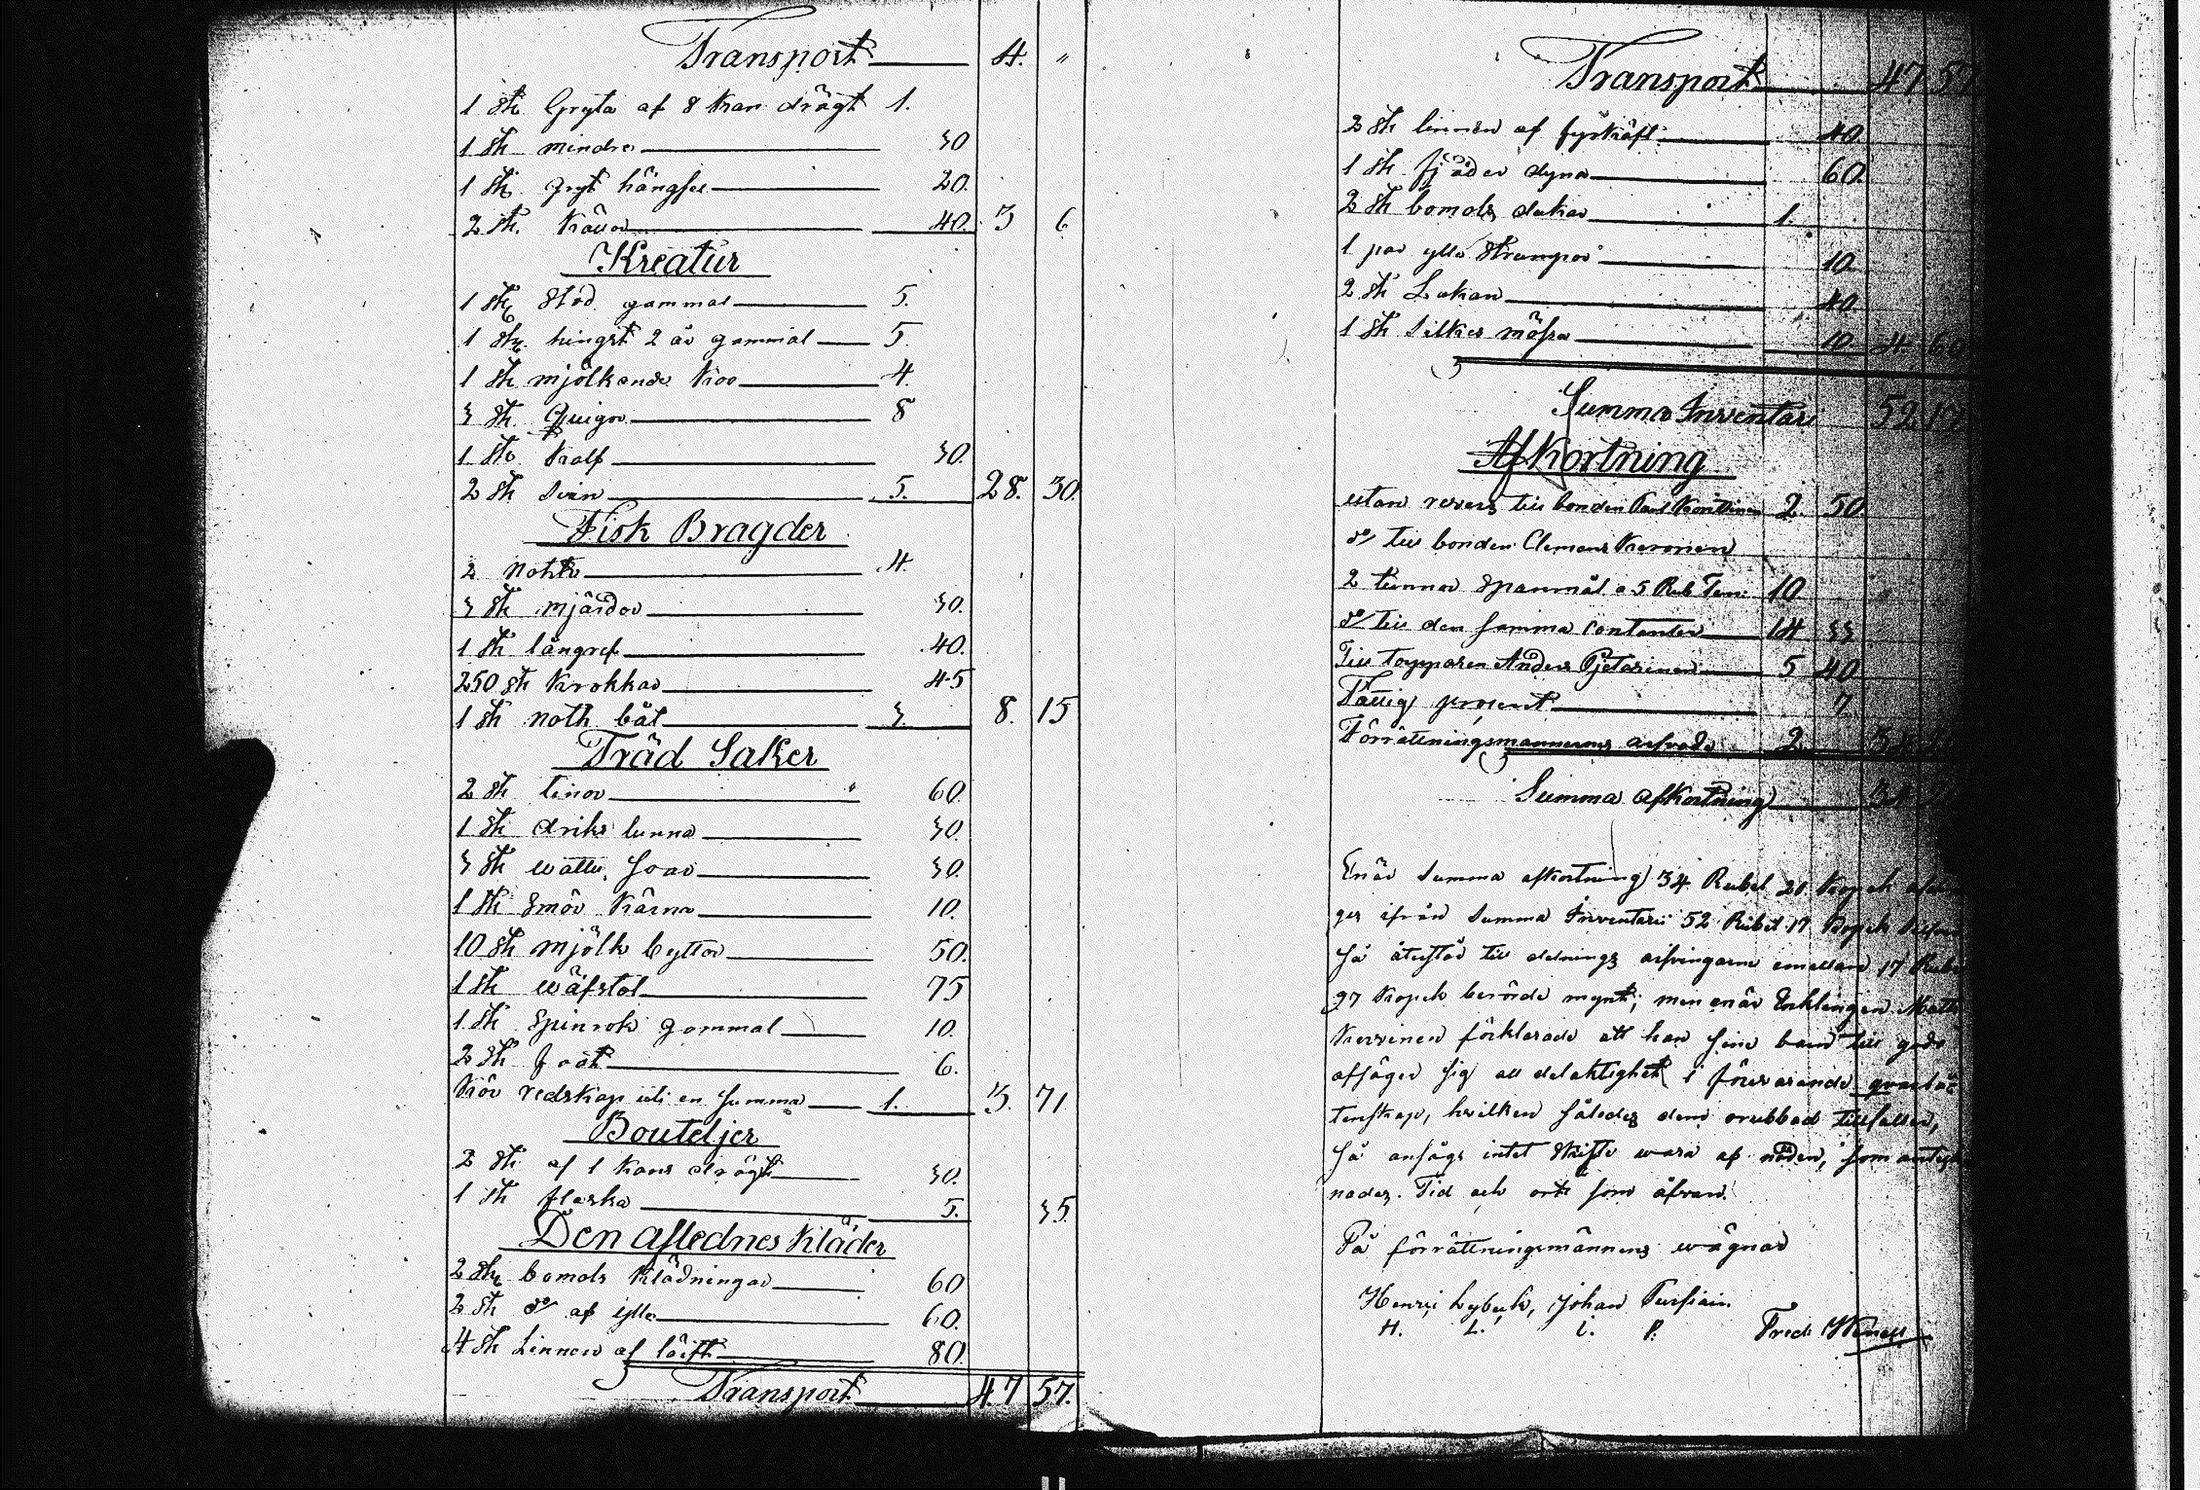 Transport 4. "
1 St Gryta af 8 Kan drägt 1.
1 St mindre 30
1 St. gryt hängsel 20.
2 St. Kräuor 40. 3 6
Kreatur
1 St Stod gammal 5.
1 St. hingst 2 år gammal 5.
1 St mjölkande Koo 4.
3 St. Quigor 8
1 St. Kalf 30.
2 St Svin 5. 28. 30.
Fisk Bragder
2 Nothr 4
3 St mjärdor 30.
1 St långref 40.
250 St Krokkar 45
1 St noth båt 3. 8. 15
Träd Saker
2 St tinor 60.
1 St driks tunna 30.
3 St wattu soar 30.
1 St Smör Kärna 10.
10 St mjölk byttor 50.
1 St wäfstol 75
1 St Spinrok gammal 10.
2 St foat 6.
Kör redskap uti en Summa 1. 3. 71
Bouteljer
2 St af 1 Kans drägt 30.
1 St flaska 5. 35.
Den Aflednes Kläder
2 St bomols Klädningar 60
2 St do af ylle 60.
4 St Linnen af läift 80.
Transport 47 57.
Transport 47 57
2 St linnen af fyrskäft 40.
1 St fjäder dyna 60.
2 St bomols dukar 1.
1 par ylle Strumpor 10
2 St Lakan 40.
1 St Silkes mössa 10 4. 60
Summa Inventari 52 17
Afkortning
utan revers till bonden Paul Konttinen 2 50.
do till bonden Clemens Kervonen
2 tunnor Spanmål a 5 Rub Tun: 10
do till den samma Contanter 14 33
Till torpparen Anders Pjetarinen 5 40
Fattig procent 7
Förrättningsmannernes arfvode 2
Summa afkortning 34
Enär Summa afkortning 34 Rubel 20 Kopek
ges ifrån Summa Inventarii 52 Rubel 17 Kopek
så återstår till delnings arfvingarne emellan 17 Rub
97 Kopek berörde mynt; men enär Enklingen Matts
Kervinen förklarade att han sine barn till godo
afsäger sig all delaktighet i förevarande qvarlå-
tenskap, hvilken således dem orubbad tillfaller,
så ansågs intet Skifte wara af nöden, som anteck-
nades. Tid och ort som ofvan.
På förrättningsmännens wägnar
Henric Lybeck, Johan Pursiain
H. L. I. P. Fredr